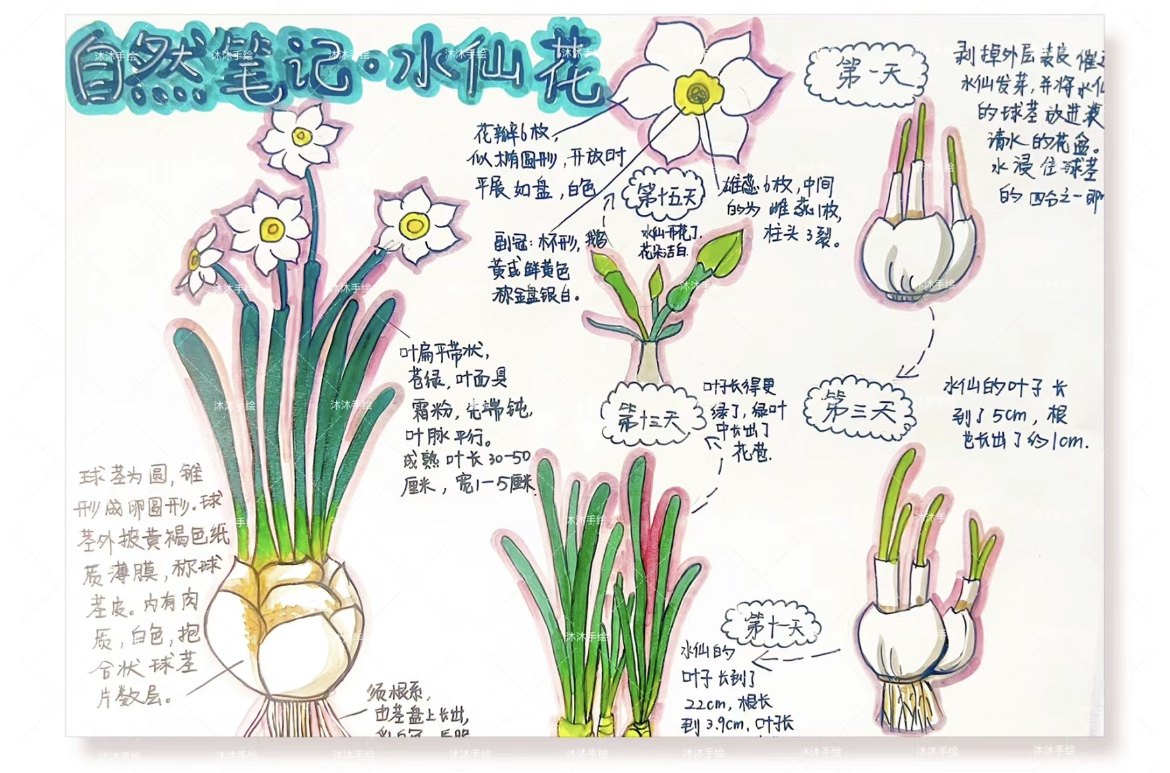 自然笔记·水仙花
花瓣6枚,
似椭圆形,开放时
平展如盘,白色
副冠:杯形,鹅
黄或鲜黄色
称金盏银台。
雄蕊6枚,中间
的为雌蕊1枚,
柱头3裂。
第一天
剥掉外层
水仙发芽,并将水仙
的球茎放进装
清水的花盆。
水浸住球茎
的四分之一即
第三天
水仙的叶子长
到了5cm,根
也长出了约1cm.
第十一天
水仙的
叶子长到了
22cm,根长
到3.9cm,叶子长
第十三天
叶子长得更
绿了,绿叶
中长出了
花苞.
第十五天
水仙开花了,
花朵洁白.
叶扁平带状,
苍绿,叶面具
霜粉,先端钝,
叶脉平行。
成熟叶长30-50
厘米,宽1-5厘米.
球茎为圆,锥
形或卵圆形.球
茎外披黄褐色纸
质薄膜,称球
茎皮。内有肉
质,白色,抱
合状球茎
片数层。
须根系,
由茎盘上长出,
沐沐手绘